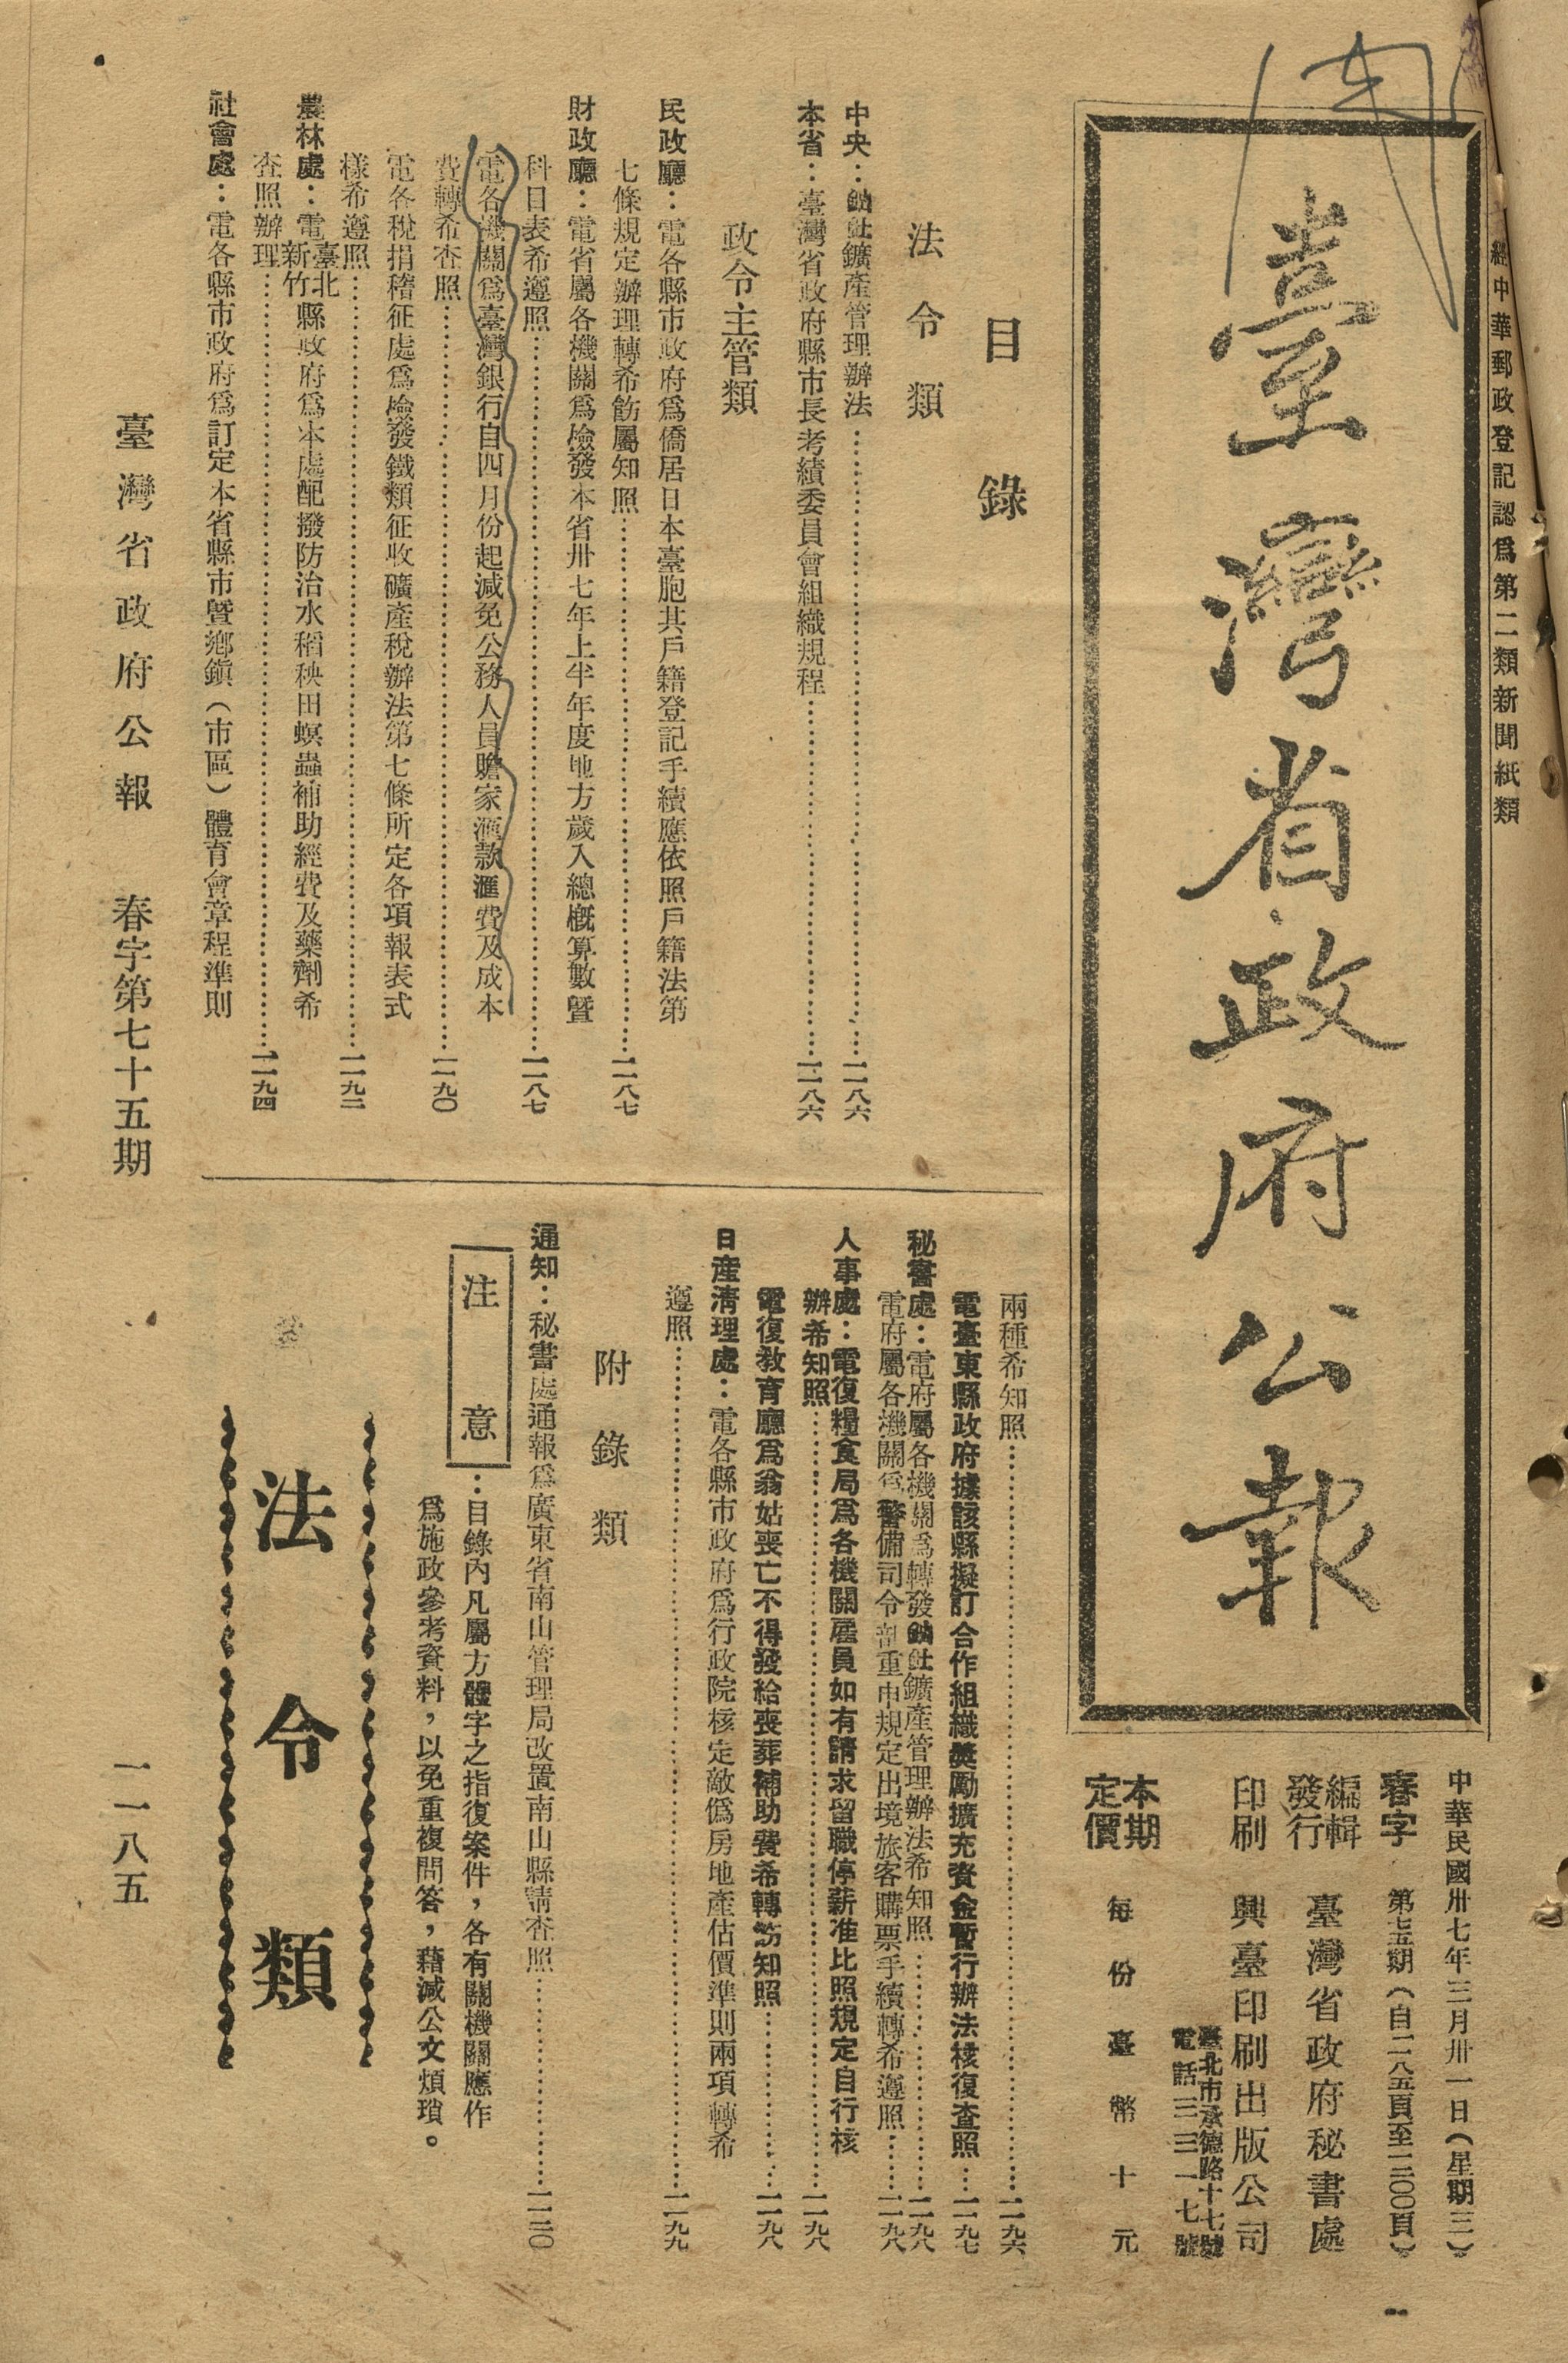 經中華郵政登記認爲第二類新聞紙類
臺灣省政府公報
中華民國卅七年三月卅一日（星期三）
春字 第七十五期（自一一八五頁至一二〇〇頁）
編輯發行 臺灣省政府秘書處
印刷 興臺印刷出版公司
臺北市承德路十七號
電話三三一七號
本期定價 每份臺幣十元
目錄
法令類
中央：鈾釷鑛產管理辦法……一一八六
本省：臺灣省政府縣市長考績委員會組織規程……一一八六
政令主管類
民政廳：電各縣市政府爲僑居日本臺胞其戶籍登記手續應依照戶籍法第
七條規定辦理轉希飭屬知照……一一八七
財政廳：電省屬各機關爲檢發本省卅七年上半年度地方歲入總概算數暨
科目表希遵照……一一八七
電各機關爲臺灣銀行自四月份起減免公務人員贍家滙款滙費及成本
費轉希查照……一一九〇
電各稅捐稽征處爲檢發鐵類征收礦產稅辦法第七條所定各項報表式
樣希遵照……一一九二
農林處：電臺北新竹縣政府爲本處配撥防治水稻秧田螟蟲補助經費及藥劑希
查照辦理……一一九四
社會處：電各縣市政府爲訂定本省縣市暨鄉鎮（市區）體育會章程準則
兩種希知照……一一九六
電臺東縣政府據該縣擬訂合作組織獎勵擴充資金暫行辦法核復查照…一一九七
秘書處：電府屬各機關爲轉發鈾釷鑛產管理辦法希知照……一一九八
電府屬各機關爲警備司令部重申規定出境旅客購票手續轉希遵照……一一九八
人事處：電復糧食局爲各機關雇員如有請求留職停薪准比照規定自行核
辦希知照……一一九八
電復教育廳爲翁姑喪亡不得發給喪葬補助費希轉飭知照……一一九八
日產清理處：電各縣市政府爲行政院核定敵僞房地產估價準則兩項轉希
遵照……一一九九
附錄類
通知：秘書處通報爲廣東省南山管理局改置南山縣請查照……一二〇〇
注意：目錄內凡屬方體字之指復案件，各有關機關應作
爲施政參考資料，以免重複問答，藉減公文煩瑣。
法令類
臺灣省政府公報 春字第七十五期 一一八五